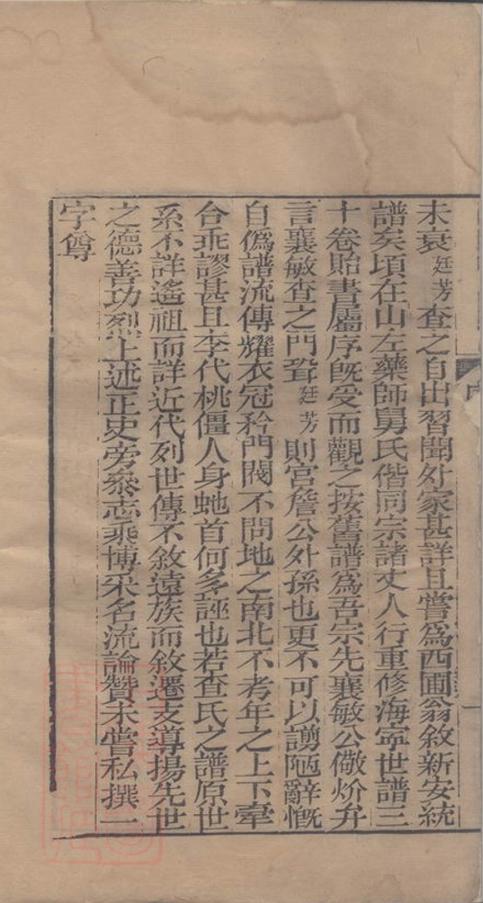 未衰廷芳查之自出習聞外家甚詳且嘗爲西圃翁敘新安統
譜矣頃在山左藥師舅氏偕同宗諸丈人行重修海寧世譜三
十卷貽書屬序旣受而觀之按舊譜爲吾宗先襄敏公儆炌弁
言襄敏查之門壻廷芳則宫詹公外孫也更不可以謭陋辭慨
自僞譜流傳耀衣冠矜門閥不問地之南北不考年之上下牽
合乖謬甚且李代桃僵人身虵首何多誣也若查氏之譜原世
系不詳遙祖而詳近代列世傳不敘遠族而敘遷支導揚先世
之德善功烈上述正史旁叅志乘博采名流論贊未嘗私撰一
字尊
序
一